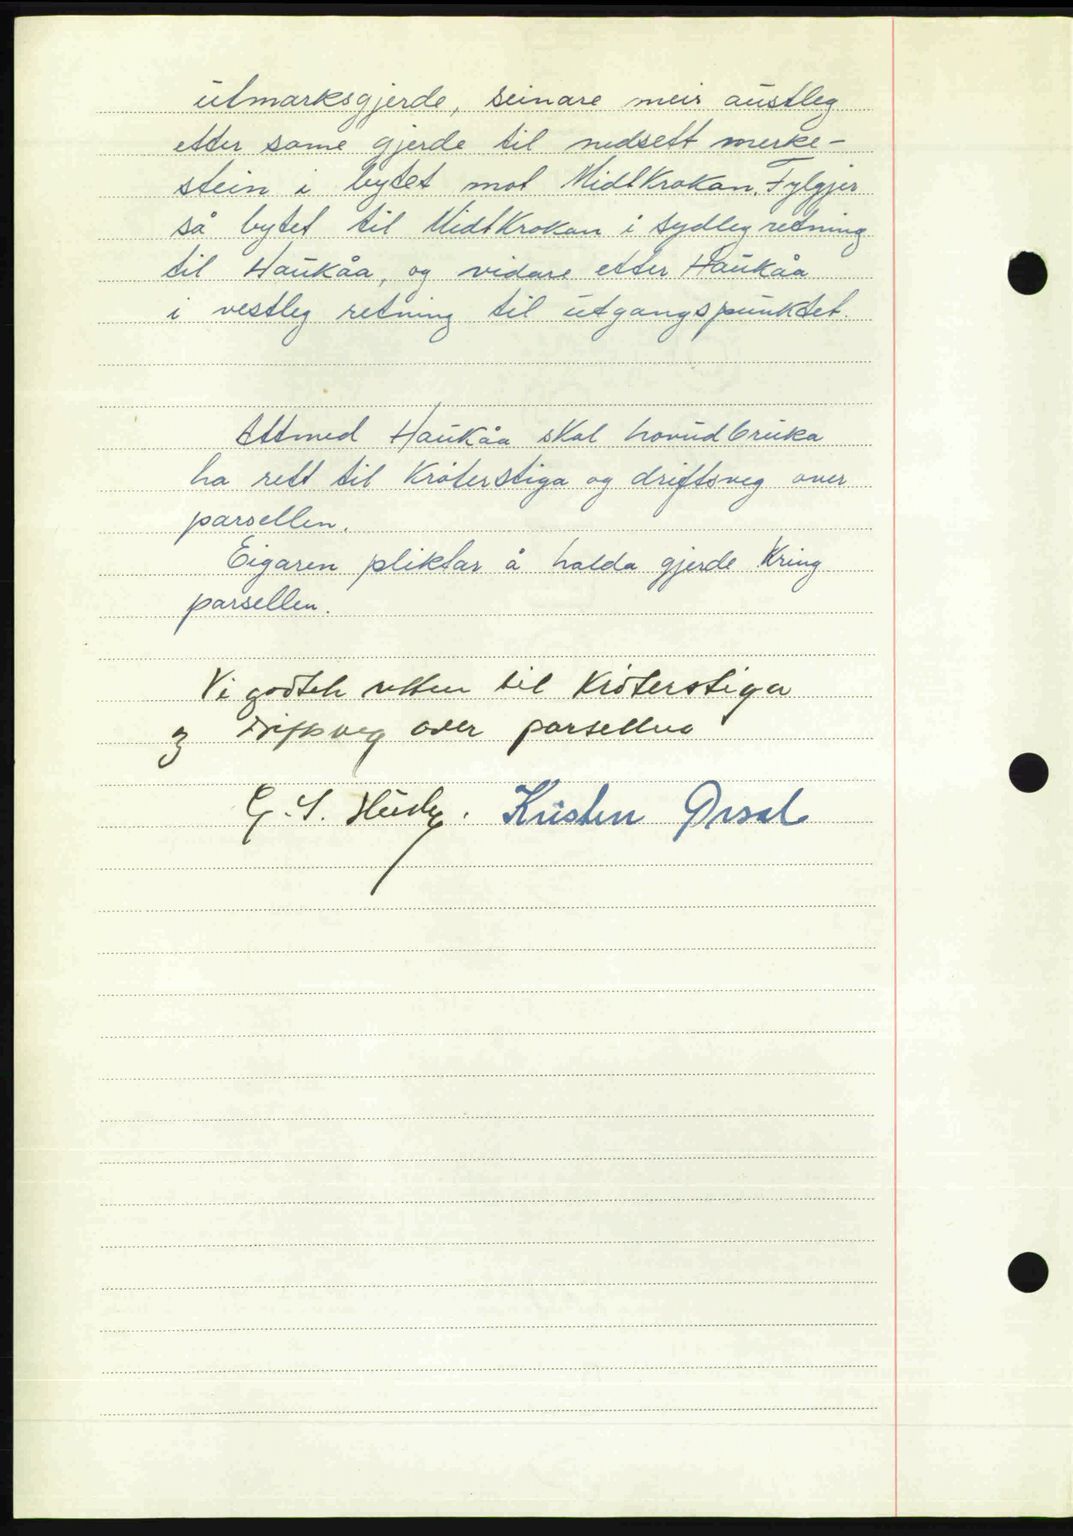 utmarksgjerde, seinare meir austleg
etter same gjerde til nedsett merke-
stein i bytet mot MidtKrokan. Fylgjer
så bytet til MidtKrokan i sydleg retning
til Haukåa, og vidare etter Haukåa
i vestleg retning til utgangspunktet.
Attmed Haukåa skal hovudbruka
ha rett til Krøterstiga og driftsveg over
parsellen.
Eigaren pliktar å halda gjerde Kring
parsellen.
Vi godtek retten til Krøterstiga
og Driftsveg over parsellen
G. S. Kristen Ørsal